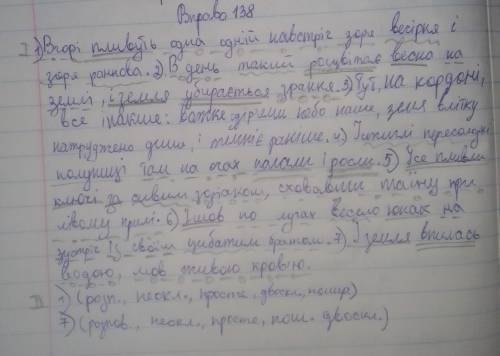 Вправа 138
I 1) Вгорі пливуть одна одній навстріч зоря вечірня і
зоря ранкова. 2) В день такий розцвітає весна на
землі, і земля убирається зрання. 3) Тут, на кордоні,
все інакше: важке дерева небо наше, земля влітку
натруджено дише, і темніє раніше. 4) І стиглі пересолодкі
полуниці там на очах палали і росли. 5) Все пливли
ключі за сивим зорганом, сховавши таїну при
лівому крилі. 6) Ішов по лугах весело юнак на
зустріч із своїм цибатим братом. 7) І земля впилась
водою, мов живою кров'ю.
II 1) (розп., неокл., просте, двоскл., пошир)
7) (розпов., неокл., просте, пош. двоскл.)